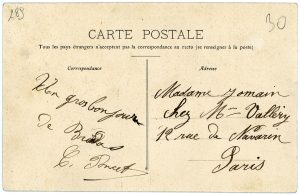 289
30
CARTE POSTALE
Tous les pays étrangers n'acceptent pas la correspondance au recto (se renseigner à la poste)
Correspondance
Un gros bonjour
de
C. Poncet
Adresse
Madame Jomain
chez Mme Valléry
12 rue de Navarin
Paris